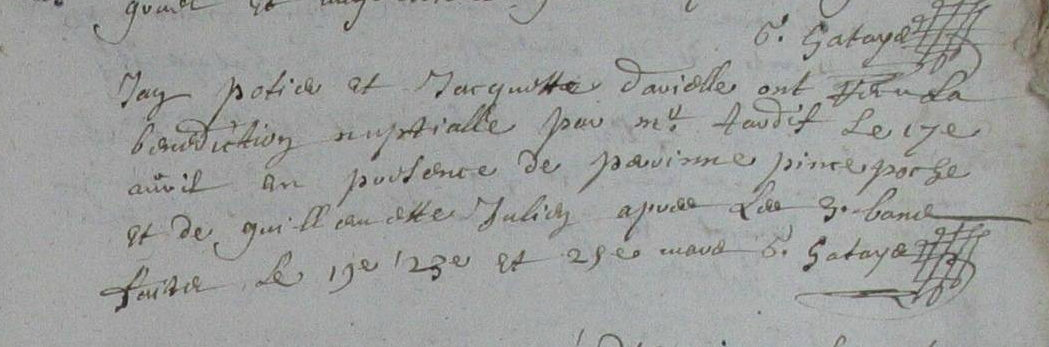 G. Hataye
Jan potier et Jacquette Davielle ont recu La
benediction nuptialle par mr. tardif Le 17e
avril en presence de perinne pincepoche
et de guillemette Julien apres Les 3. bans
faits Le 19e 23e et 25e mars G. Hataye